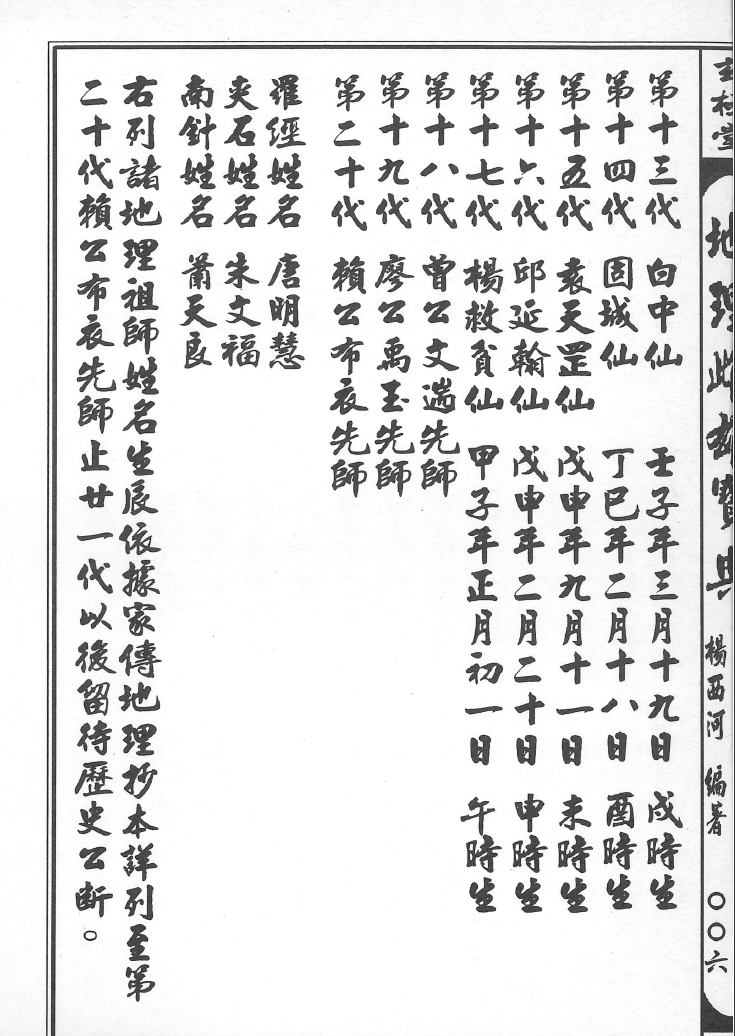 地理
寶典
楊西河 編著
○○六
第十三代 白中仙 壬子年三月十九日 戌時生
第十四代 固城仙 丁巳年二月十八日 酉時生
第十五代 袁天罡仙 戊申年九月十一日 未時生
第十六代 邱延翰仙 戊申年二月二十日 申時生
第十七代 楊救貧仙 甲子年正月初一日 午時生
第十八代 曾公文遄先師
第十九代 廖公禹玉先師
第二十代 賴公布衣先師
羅經姓名 唐明慧
夾石姓名 朱文福
南針姓名 蕭天良
右列諸地理祖師姓名生辰依據家傳地理抄本詳列至第
二十代賴公布衣先師止廿一代以後留待歷史公斷。